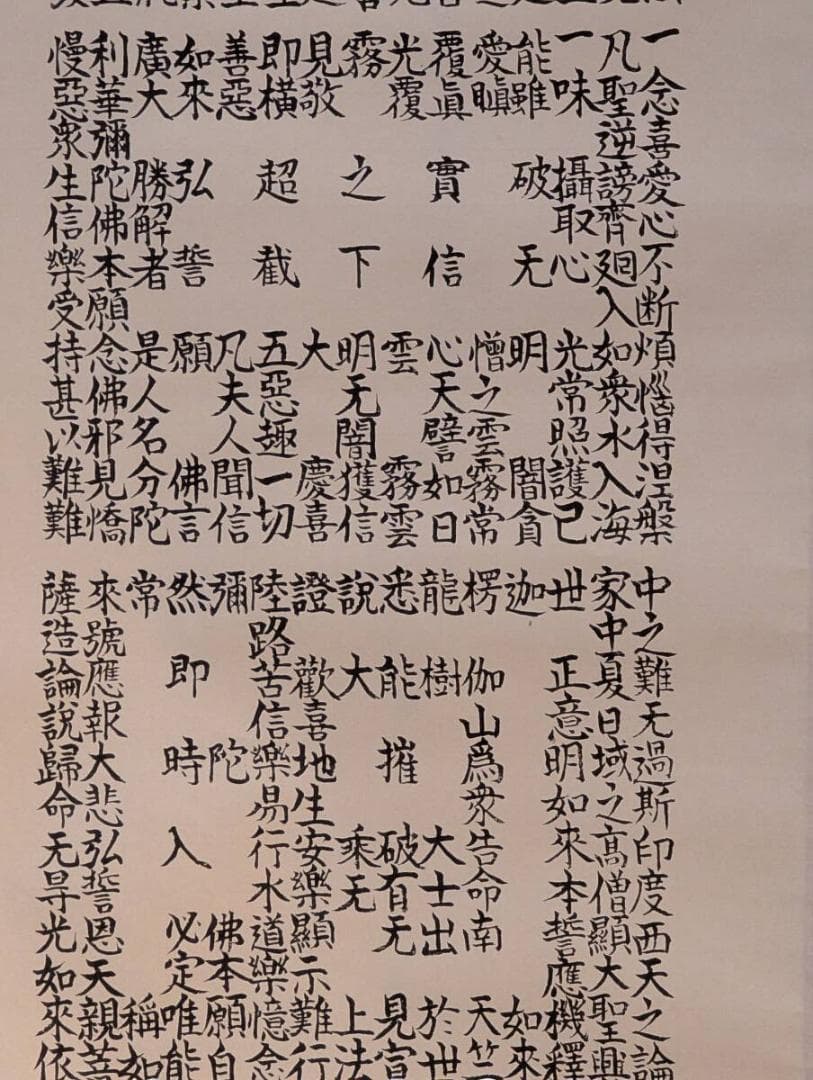 一念喜愛心不断煩惱得涅槃
凡聖逆謗齊廻入如衆水入海
一味攝取心光常照護已
能雖破无明闇貪
愛瞋憎之雲霧常
覆眞實信心天譬如日
光覆雲霧雲
霧之下明无闇獲信
見敬大慶喜
即横超截五惡趣一切
善惡凡夫人聞信
如來弘誓願佛言
廣大勝解者是人名分陀
利華彌陀佛本願念佛邪見憍
慢惡衆生信樂受持甚以難難
中之難无過斯印度西天之論
家中夏日域之髙僧顯大聖興
世正意明如來本誓應機釋
迦如來
楞伽山爲衆告命南天竺
龍樹大士出於世
悉能摧破有无見宣
說大乘无上法
證歡喜地生安樂顯示難行
陸路苦信樂易行水道樂憶念
彌陀佛本願自
然即時入必定唯能
常稱如
來號應報大悲弘誓恩天親菩
薩造論說歸命无㝵光如來依